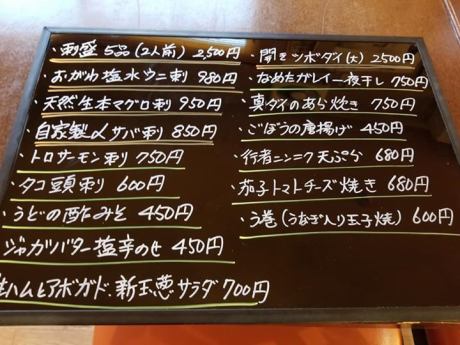 ・刺盛 5品(2人前) 2,500円
・おがわ塩水ウニ刺 980円
・天然生本マグロ刺 950円
・自家製〆サバ刺 850円
・トロサーモン刺 750円
・タコ頭刺 600円
・うどの酢みそ 450円
・ジャガバター塩辛のせ 450円
生ハムとアボガド、新玉葱サラダ 700円
・開きツボダイ(大) 2500円
・なめたガレイ一夜干し 750円
・真ダイのあら炊き 750円
・ごぼうの唐揚げ 450円
・行者ニンニク天ぷら 680円
・茄子トマトチーズ焼き 680円
・う巻(うなぎ入り玉子焼) 600円